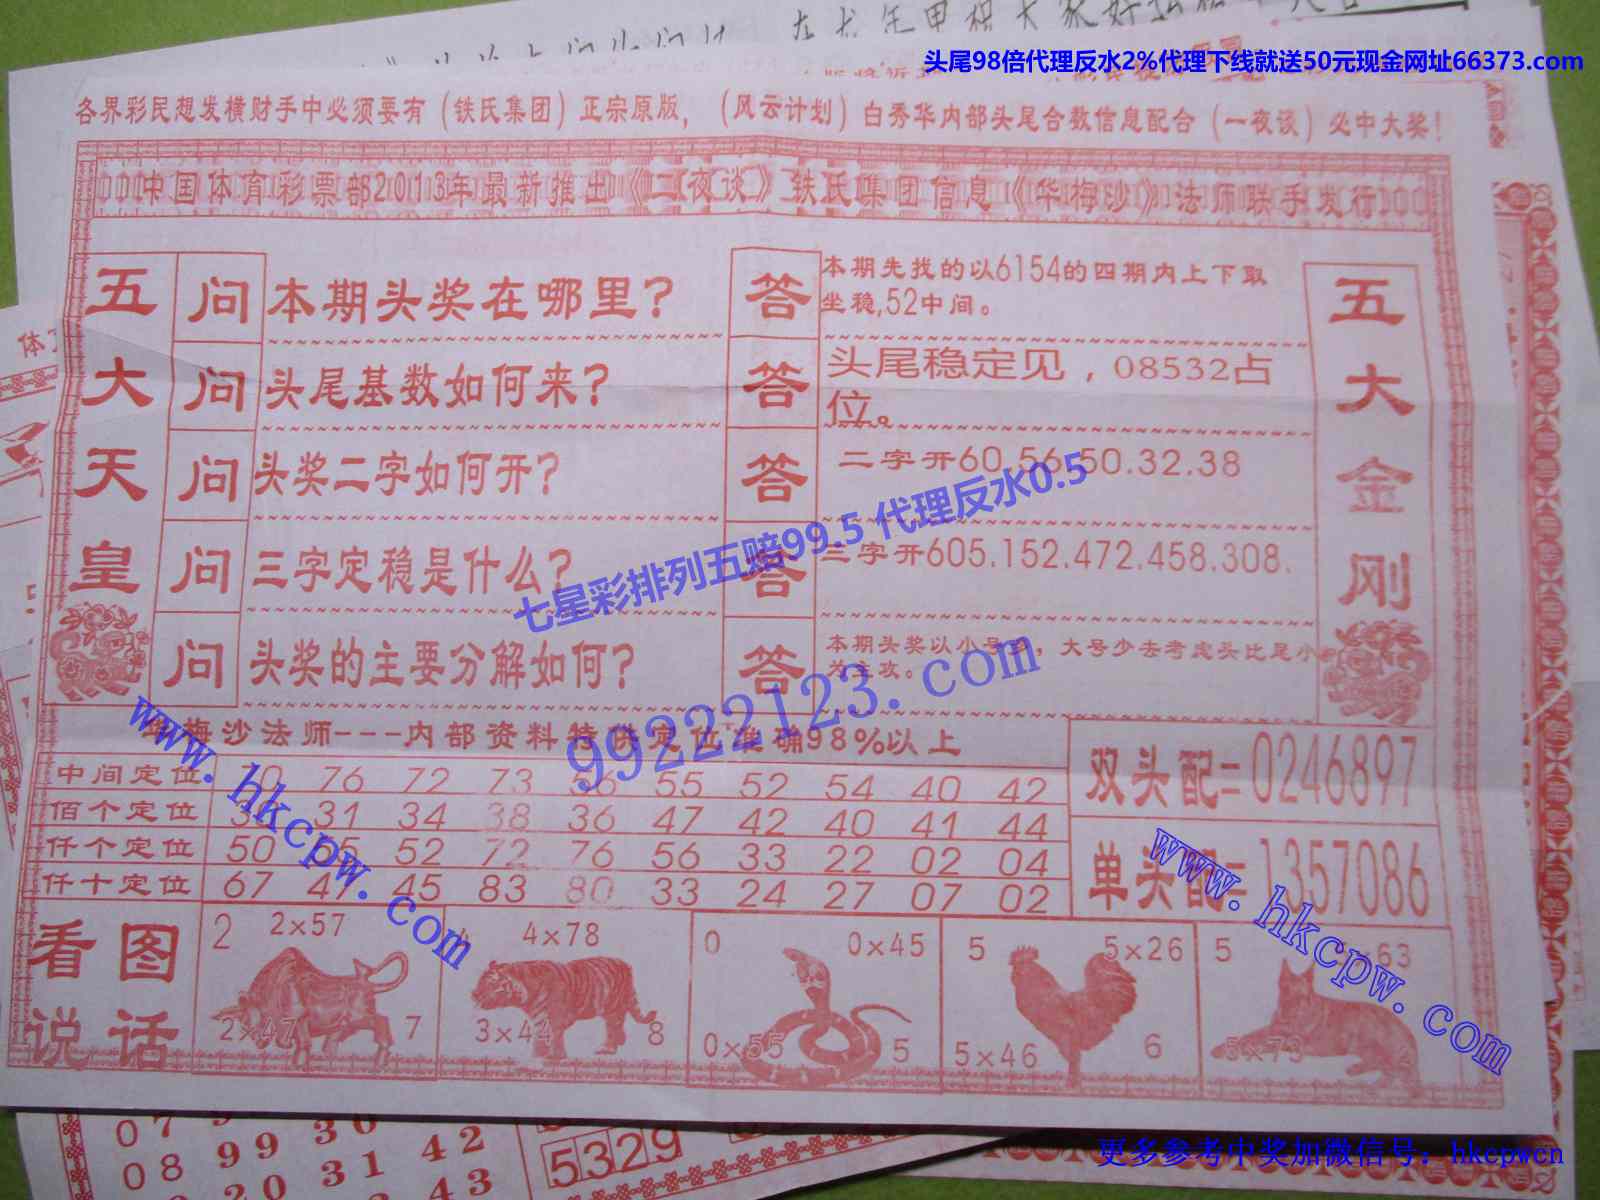 头尾98倍代理反水2%代理下线就送50元现金网址66373.com
各界彩民想发横财手中必须要有（铁氏集团）正宗原版，（风云计划）白秀华内部头尾合数信息配合（一夜谈）必中大奖！
中国体育彩票部2013年最新推出《二夜谈》铁氏集团信息《华梅沙》法师联手发行
五大天皇
问 本期头奖在哪里？
答 本期先找的以6154的四期内上下取
坐稳,52中间。
问 头尾基数如何来？
答 头尾稳定见，08532占
位。
问 头奖二字如何开？
答 二字开60.56.50.32.38
问 三字定稳是什么？
答 三字开605.152.472.458.308.
问 头奖的主要分解如何？
答 本期头奖以小号多，大号少去考虑头比尾小
为主攻。
五大金刚
七星彩排列五赔99.5 代理反水0.5
99222123.com
www.hkcpw.com
梅沙法师---内部资料特供定位准确98%以上
中间定位 70 76 72 73 56 55 52 54 40 42
佰个定位 31 34 38 36 47 42 40 41 44
仟个定位 50 52 72 76 56 33 22 02 04
仟十定位 67 47 45 83 80 33 24 27 07 02
双头配=0246897
单头配=1357086
www.hkcpw.com
看图
说话
2 2×57
2×47 7
4 4×78
3×44 8
0 0×45
0×55 5
5 5×26
5×46 6
5 63
5×73
07
08 99 30
20 31 42
41 44
5329
更多参考中奖加微信号：hkcpwcn